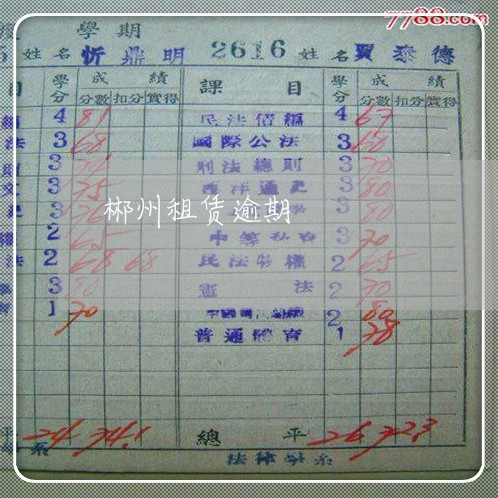 7788.com
學期
姓名 忻鼎明 2616 姓名 賈泰德
目 學分 成績 課目 學分 成績
分數 扣分 實得 分數 扣分 實得
4 81 民法債編 4 67
法 3 68 國際公法 3 60
則 3 刑法總則 3 70
3 75 西洋通史 3 80
3 3 80
郴州租赁逾期
2 65 3 70
法 2 68 68 民法物權 2 65
3 80 憲法 2 70
1 70 2 80
普通體育 1 78
平 24 74.1 總平 26 72.3
系 法律學系